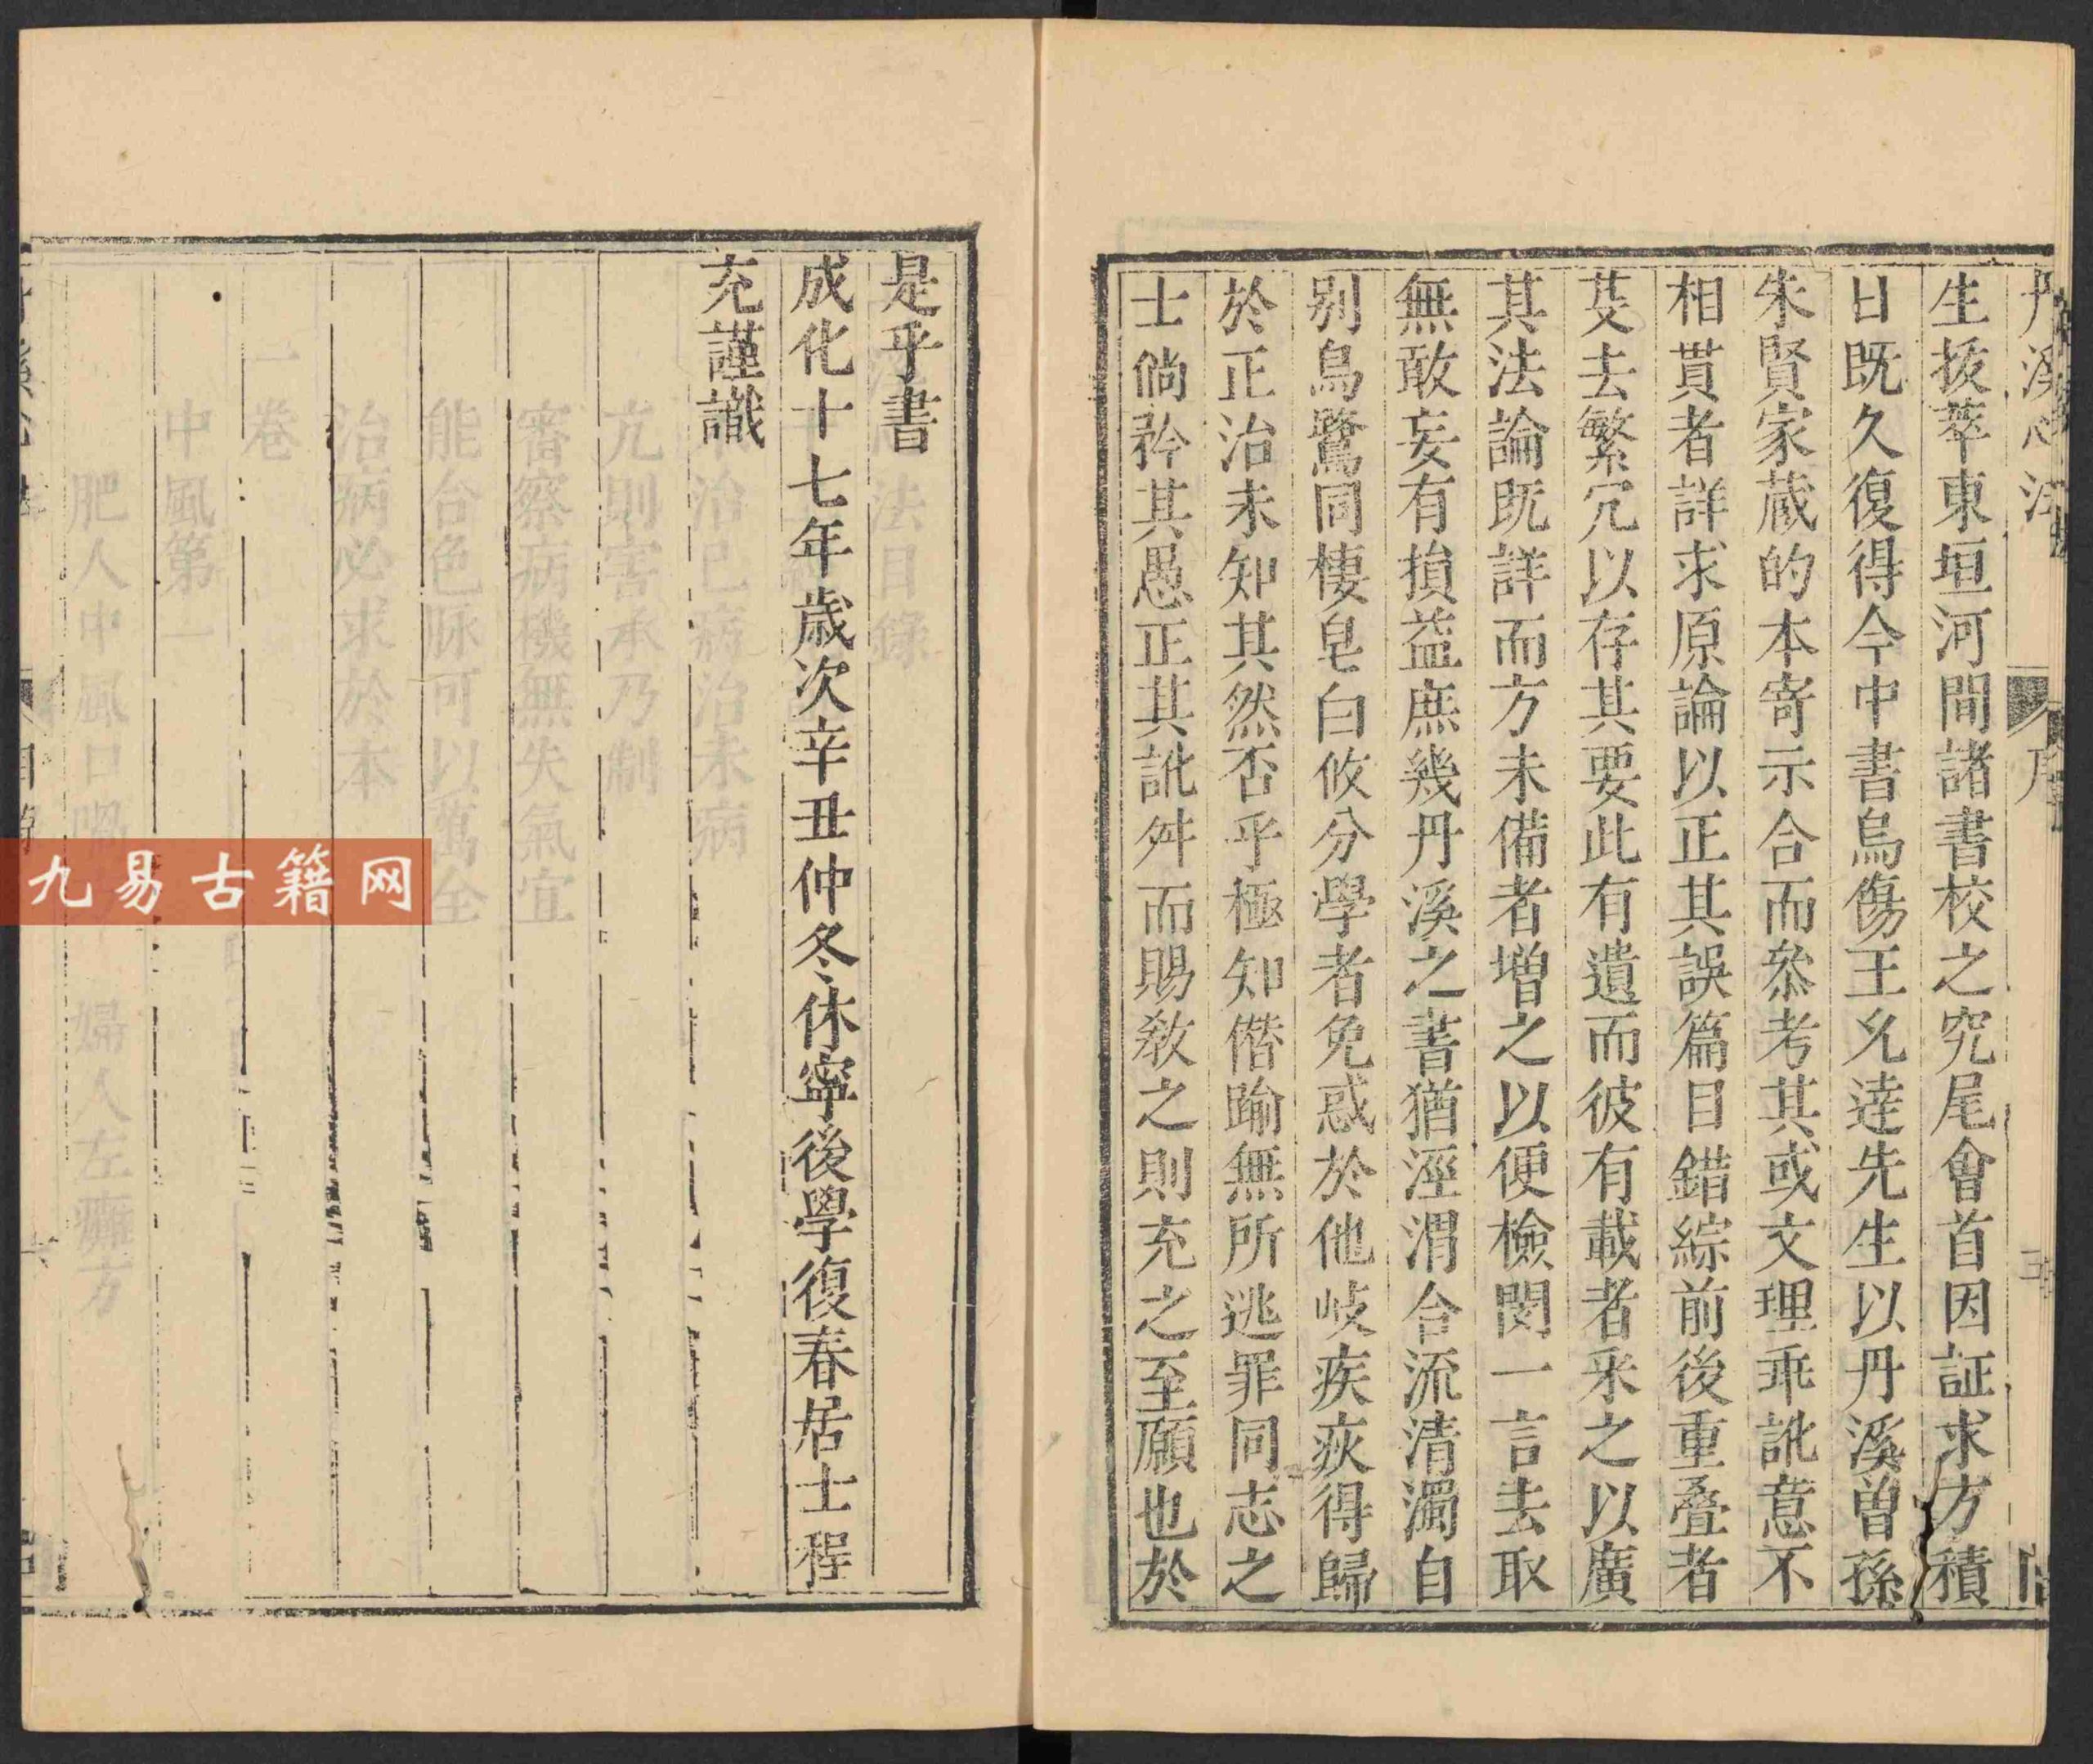 丹溪心法
序
生拔萃東垣河間諸書校之究尾會首因証求方積
日既久復得今中書烏傷王允逹先生以丹溪曽孫
朱賢家蔵的本寄示合而叅考其或文理乖訛意不
相貫者詳求原論以正其誤篇目錯綜前後重叠者
芟去繁冗以存其要此有遺而彼有載者采之以廣
其法論既詳而方未備者増之以便檢閱一言去取
無敢妄有損益庶幾丹溪之書猶涇渭合流清濁自
别鳥鷺同棲皂白攸分學者免惑於他岐疾疢得歸
於正治未知其然否乎極知僭踰無所逃罪同志之
士倘矜其愚正其訛舛而賜敎之則充之至願也於
是乎書
成化十七年歳次辛丑仲冬休寧後學復春居士程
充謹識
九易古籍网